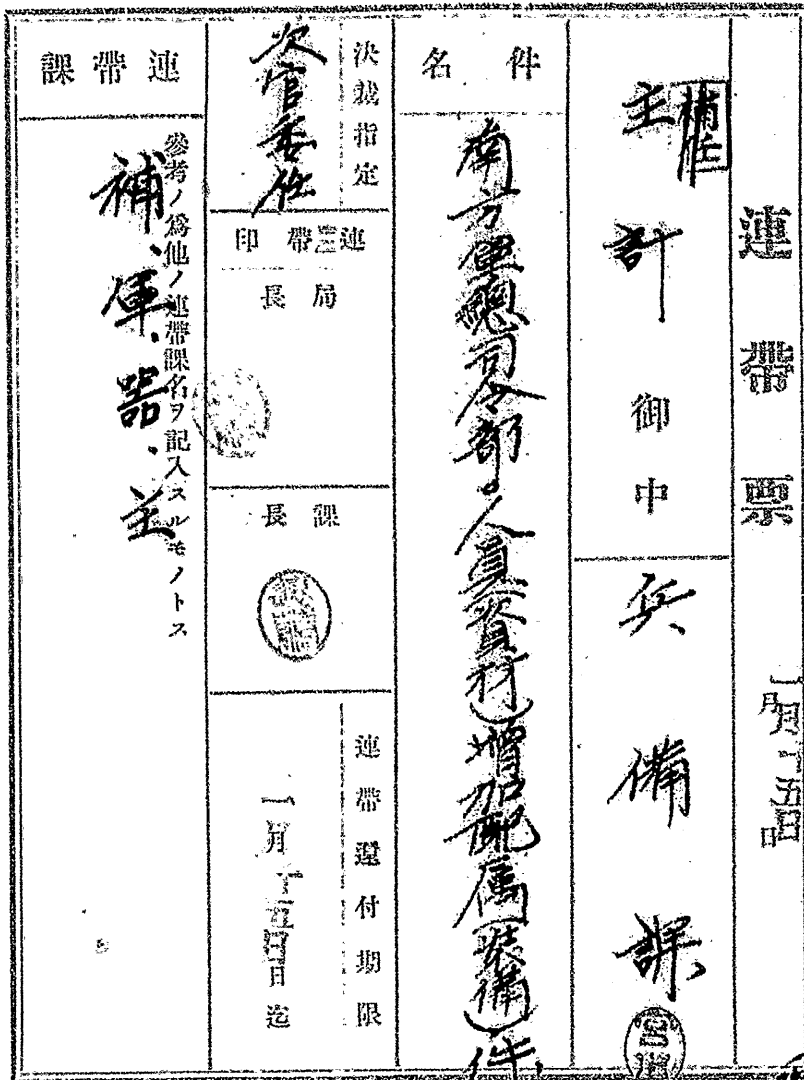 連帶票
一月十五日
補任
主計 御中
兵備課
件名
南方軍總司令部ノ人員(資材)增加配属(裝備)件
決裁指定
次官委任
連帶印
局長
課長
連帶還付期限
一月十五日迄
連帶課
參考ノ爲他ノ連帶課名ヲ記入スルモノトス
補、軍、器、主